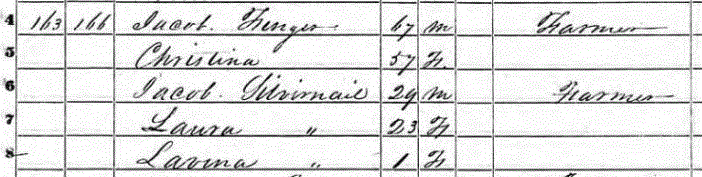 4 163 166 Jacob Finger 67 m Farmer
5 Christina 57 F.
6 Jacob Silvirnail 29 m Farmer
7 Laura " 23 F
8 Lavina " 1 F